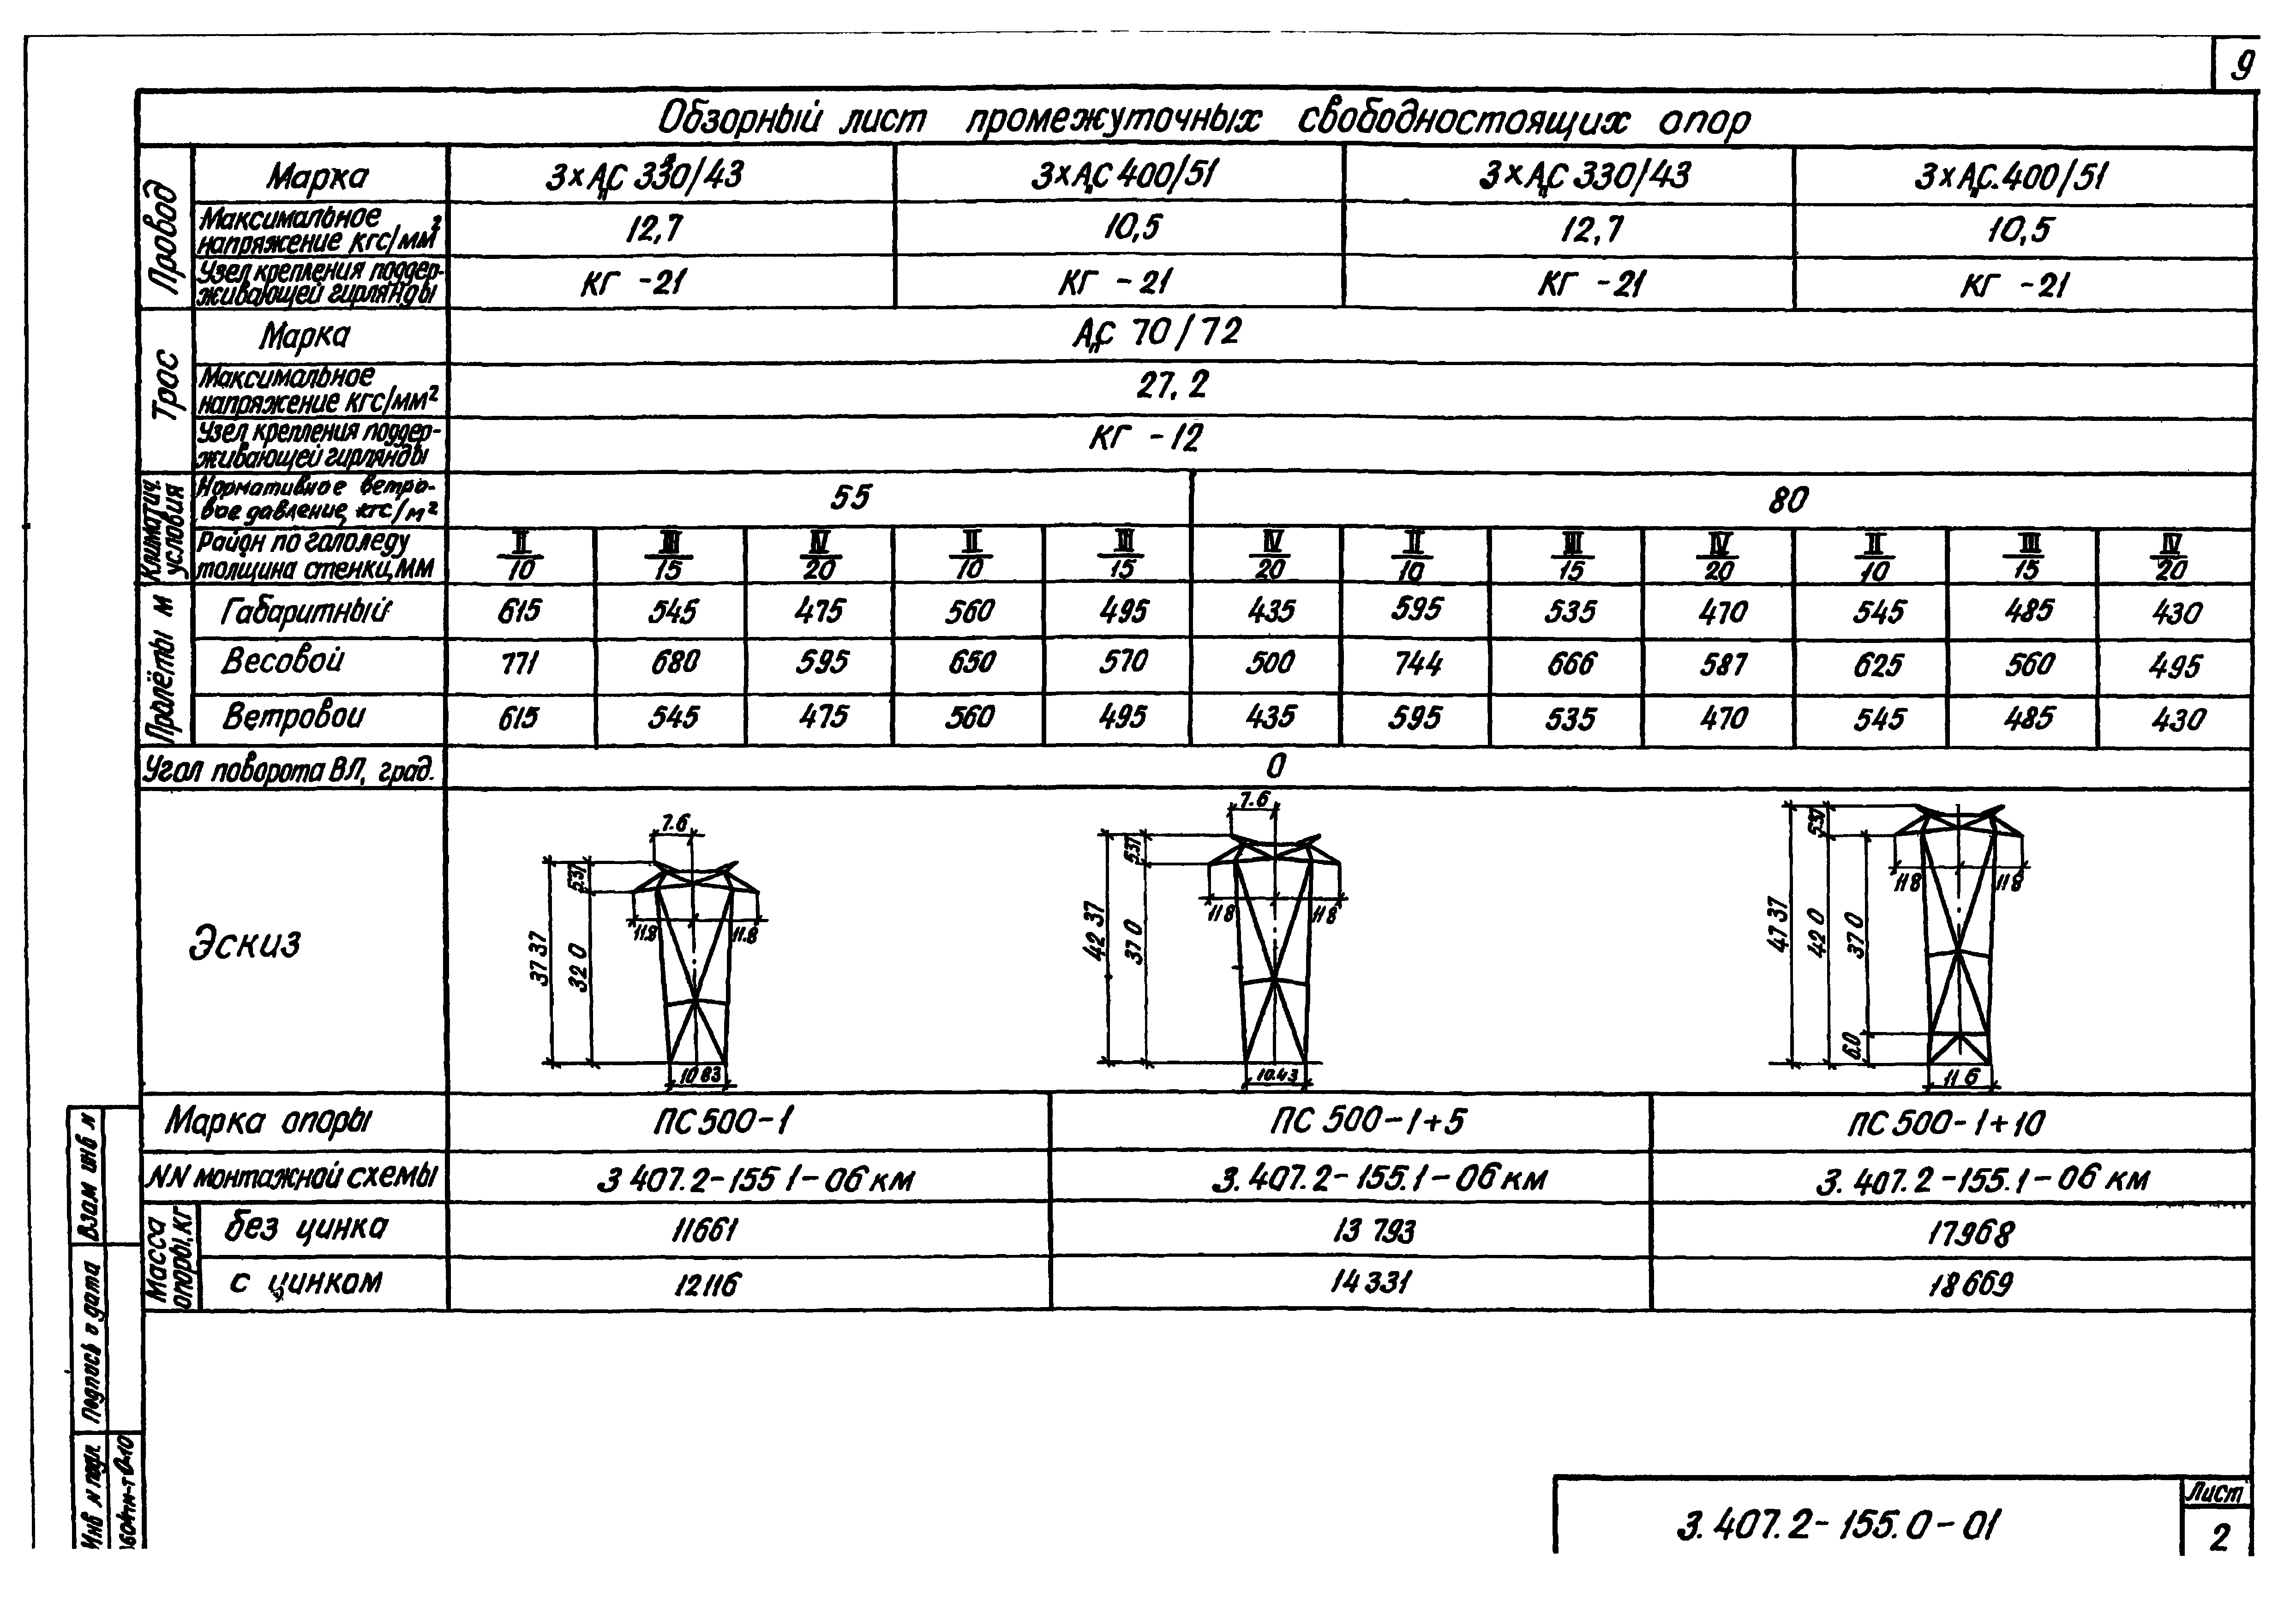 9
Обзорный лист промежуточных свободностоящих опор
Провод
Марка 3×АпС 330/43 3×АпС 400/51 3×АпС 330/43 3×АпС.400/51
Максимальное
напряжение кгс/мм² 12,7 10,5 12,7 10,5
Узел крепления поддер-
живающей гирлянды КГ -21 КГ -21 КГ -21 КГ -21
Трос
Марка АпС 70/72
Максимальное
напряжение кгс/мм² 27,2
Узел крепления поддер-
живающей гирлянды КГ -12
Климатич.
условия
Нормативное ветро-
вое давление, кгс/м² 55 80
Район по гололеду II III IV II III IV II III IV II III IV
толщина стенки, мм 10 15 20 10 15 20 10 15 20 10 15 20
Пролёты м
Габаритный 615 545 475 560 495 435 595 535 470 545 485 430
Весовой 771 680 595 650 570 500 744 666 587 625 560 495
Ветровои 615 545 475 560 495 435 595 535 470 545 485 430
Угол поворота ВЛ, град. 0
Эскиз
7.6 5.37 37 37 32 0 11.8 11.8 10 83
7.6 5.37 42 37 37 0 11 8 11 8 10.43
5.37 47 37 42 0 37 0 6.0 11 8 11 8 11 6
Марка опоры ПС 500-1 ПС 500-1+5 ПС 500-1+10
NN монтажной схемы 3 407.2-155 1-06 км 3.407.2-155.1-06 км 3.407.2-155.1-06 км
Масса
опоры, кг
без цинка 11661 13 793 17968
с цинком 12116 14 331 18 669
Взам инв н
Подпись и дата
Инв н подл.
3.407.2-155.0-01
Лист
2